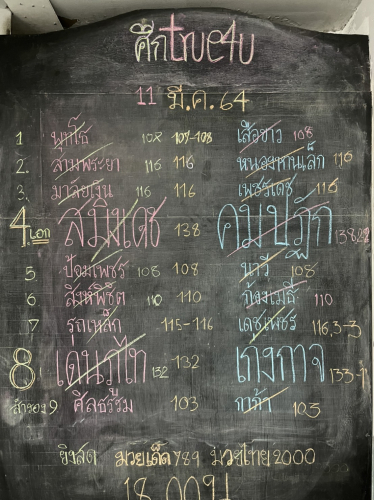 ศึกtrue4u
11 มี.ค. 64
1 พุทโธ 108 107-108 เสือขาว 108
2. สามพระยา 116 116 หนองทานเล็ก 116
3. มาลัยเงิน 116 116 เพชรเดช 116
4 เอก สมิงเดช 138 คมปฏัก 138
5 ป้อมเพชร 108 108 นาวี 108
6 สิงห์พิชิต 110 110 ก้องเมธี 110
7 รุณเหล็ก 115-116 เดชเพชร 116,3-3
8 เดนภูไท 132 132 เกงกาจ 133-1
สำรอง 9 ศีลธรรม 103 กาก้า 103
ยิงสด มวยเด็ด789 มวยไทย2000
18.00น